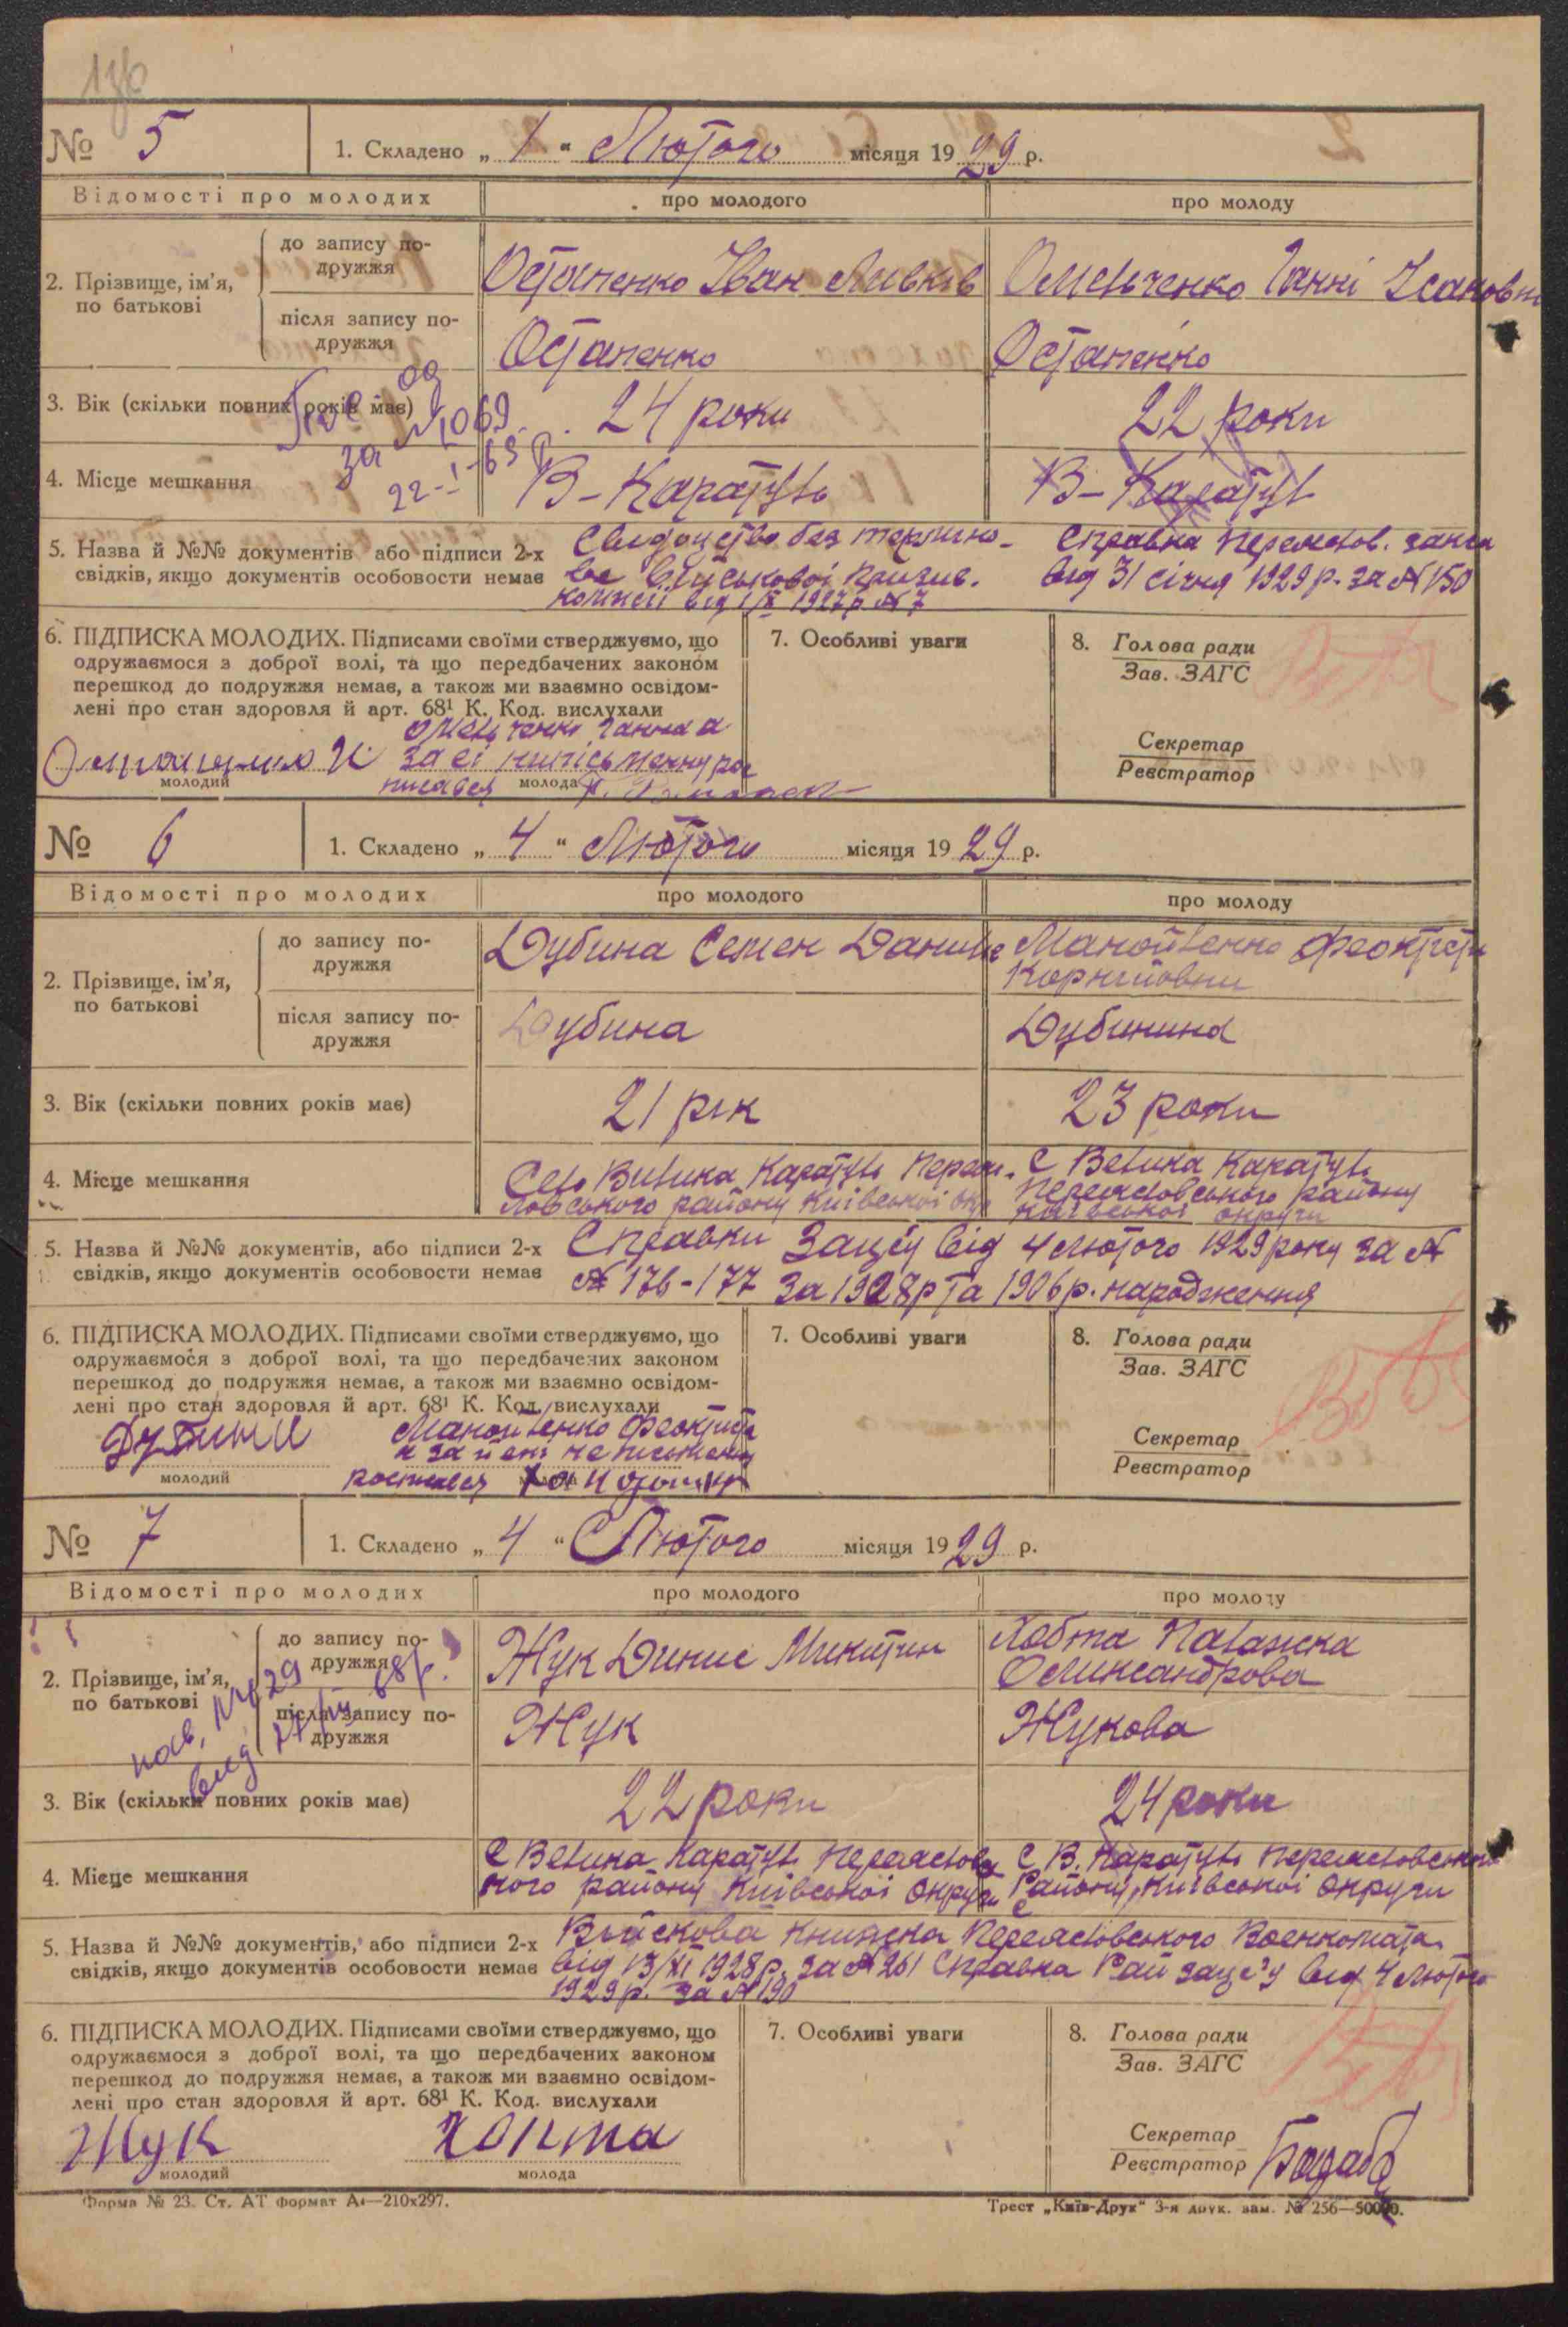 № 5 1. Складено „ 1 “ Лютого місяця 1929 р.
Відомості про молодих про молодого про молоду
2. Прізвище, ім'я, по батькові
до запису по-
дружжя
Остапенко Іван Омельченко Ганні
після запису по-
дружжя
Остапенко Остапенко
3. Вік (скільки повних років має) 24 роки 22 роки
за № 1069
22-I-63 р
4. Місце мешкання В-Каратуль В-Каратуль
5. Назва й №№ документів або підписи 2-х
свідків, якщо документів особовости немає
Свидоцтво без терміно-
ве військової призив.
комисії від 1/X 1927 р № 7
Справка Переяслов. загса
від 31 січня 1929 р. за № 150
6. ПІДПИСКА МОЛОДИХ. Підписами своїми стверджуємо, що
одружаємося з доброї волі, та що передбачених законом
перешкод до подружжя немає, а також ми взаємно освідом-
лені про стан здоровля й арт. 68¹ К. Код. вислухали
Омельченко Ганна а
за еі рос
писався
молодий молода
7. Особливі уваги
8. Голова ради
Зав. ЗАГС
Секретар
Реєстратор
№ 6 1. Складено „ 4 “ Лютого місяця 1929 р.
Відомості про молодих про молодого про молоду
2. Прізвище, ім'я,
по батькові
до запису по-
дружжя
Дубина Семен Данил Манойленко
Корнійовни
після запису по-
дружжя
Дубина Дубинина
3. Вік (скільки повних років має) 21 рік 23 роки
4. Місце мешкання
Село Велика Каратуль Переяс-
ловського району Київської окр
С Велика Каратуль
Переясловського району
Київської округи
5. Назва й №№ документів, або підписи 2-х
свідків, якщо документів особовости немає
Справки Загсу від 4 Лютого 1929 року за №
№ 176-177 за 1908 р та 1906 р. народження
6. ПІДПИСКА МОЛОДИХ. Підписами своїми стверджуємо, що
одружаємося з доброї волі, та що передбачених законом
перешкод до подружжя немає, а також ми взаємно освідом-
лені про стан здоровля й арт. 68¹ К. Код. вислухали
Манойленко
а за
росписався
молодий молода
7. Особливі уваги
8. Голова ради
Зав. ЗАГС
Секретар
Реєстратор
№ 7 1. Складено „ 4 “ Лютого місяця 1929 р.
Відомості про молодих про молодого про молоду
2. Прізвище, ім'я,
по батькові
до запису по-
дружжя
Жук Динис Микитин
Хобта Палажка
Олександрова
після запису по-
дружжя
Жук Жукова
3. Вік (скільки повних років має) 22 роки 24 роки
4. Місце мешкання
С Велика Каратуль Переяслов
кого району Київської округи
С В. Каратуль Переясловського
Району, Київської округи
5. Назва й №№ документів, або підписи 2-х
свідків, якщо документів особовости немає
Військова книжка Переясловського Военкомата
від 13/XI 1928 р. за № 261 Справка Рай загс'у від 4 Лютого
1929 р. за № 190
6. ПІДПИСКА МОЛОДИХ. Підписами своїми стверджуємо, що
одружаємося з доброї волі, та що передбачених законом
перешкод до подружжя немає, а також ми взаємно освідом-
лені про стан здоровля й арт. 68¹ К. Код. вислухали
Жук Хопта
молодий молода
7. Особливі уваги
8. Голова ради
Зав. ЗАГС
Секретар
Реєстратор
Форма № 23. Ст. АТ формат А₄—210х297.
Трест „Київ-Друк“ 3-я друк. зам. № 256—50000.